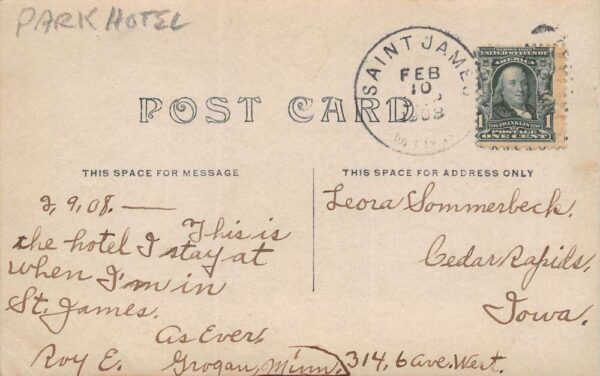 PARK HOTEL
SAINT JAMES
FEB
10
1908
MINN
UNITED STATES OF
AMERICA
1
1
FRANKLIN
POSTAGE
ONE CENT
POST CARD
THIS SPACE FOR MESSAGE
2,9,08. —
This is
the hotel I stay at
when I'm in
St. James.
As Ever,
Roy E. Grogan, Minn.
THIS SPACE FOR ADDRESS ONLY
Leora Sommerbeck.
Cedar Rapids,
Iowa.
314, 6 ave. West.